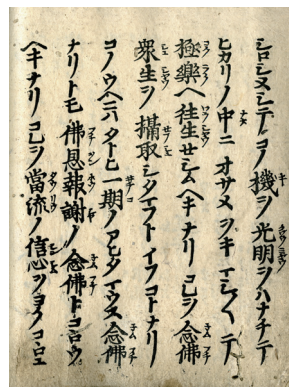 シロシメシテコノ機ヲ光明ヲハナチテ
ヒカリノ中ニオサメヲキマシ〱テ
極樂ヘ往生セシムヘキナリコレヲ念佛
衆生ヲ攝取シタマフトイフコトナリ
コノウヘニハタトヒ一期ノアヒタマウス念佛
ナリトモ佛恩報謝ノ念佛トコヽロウ
ヘキナリコレヲ當流ノ信心ヲヨクコヽロエ